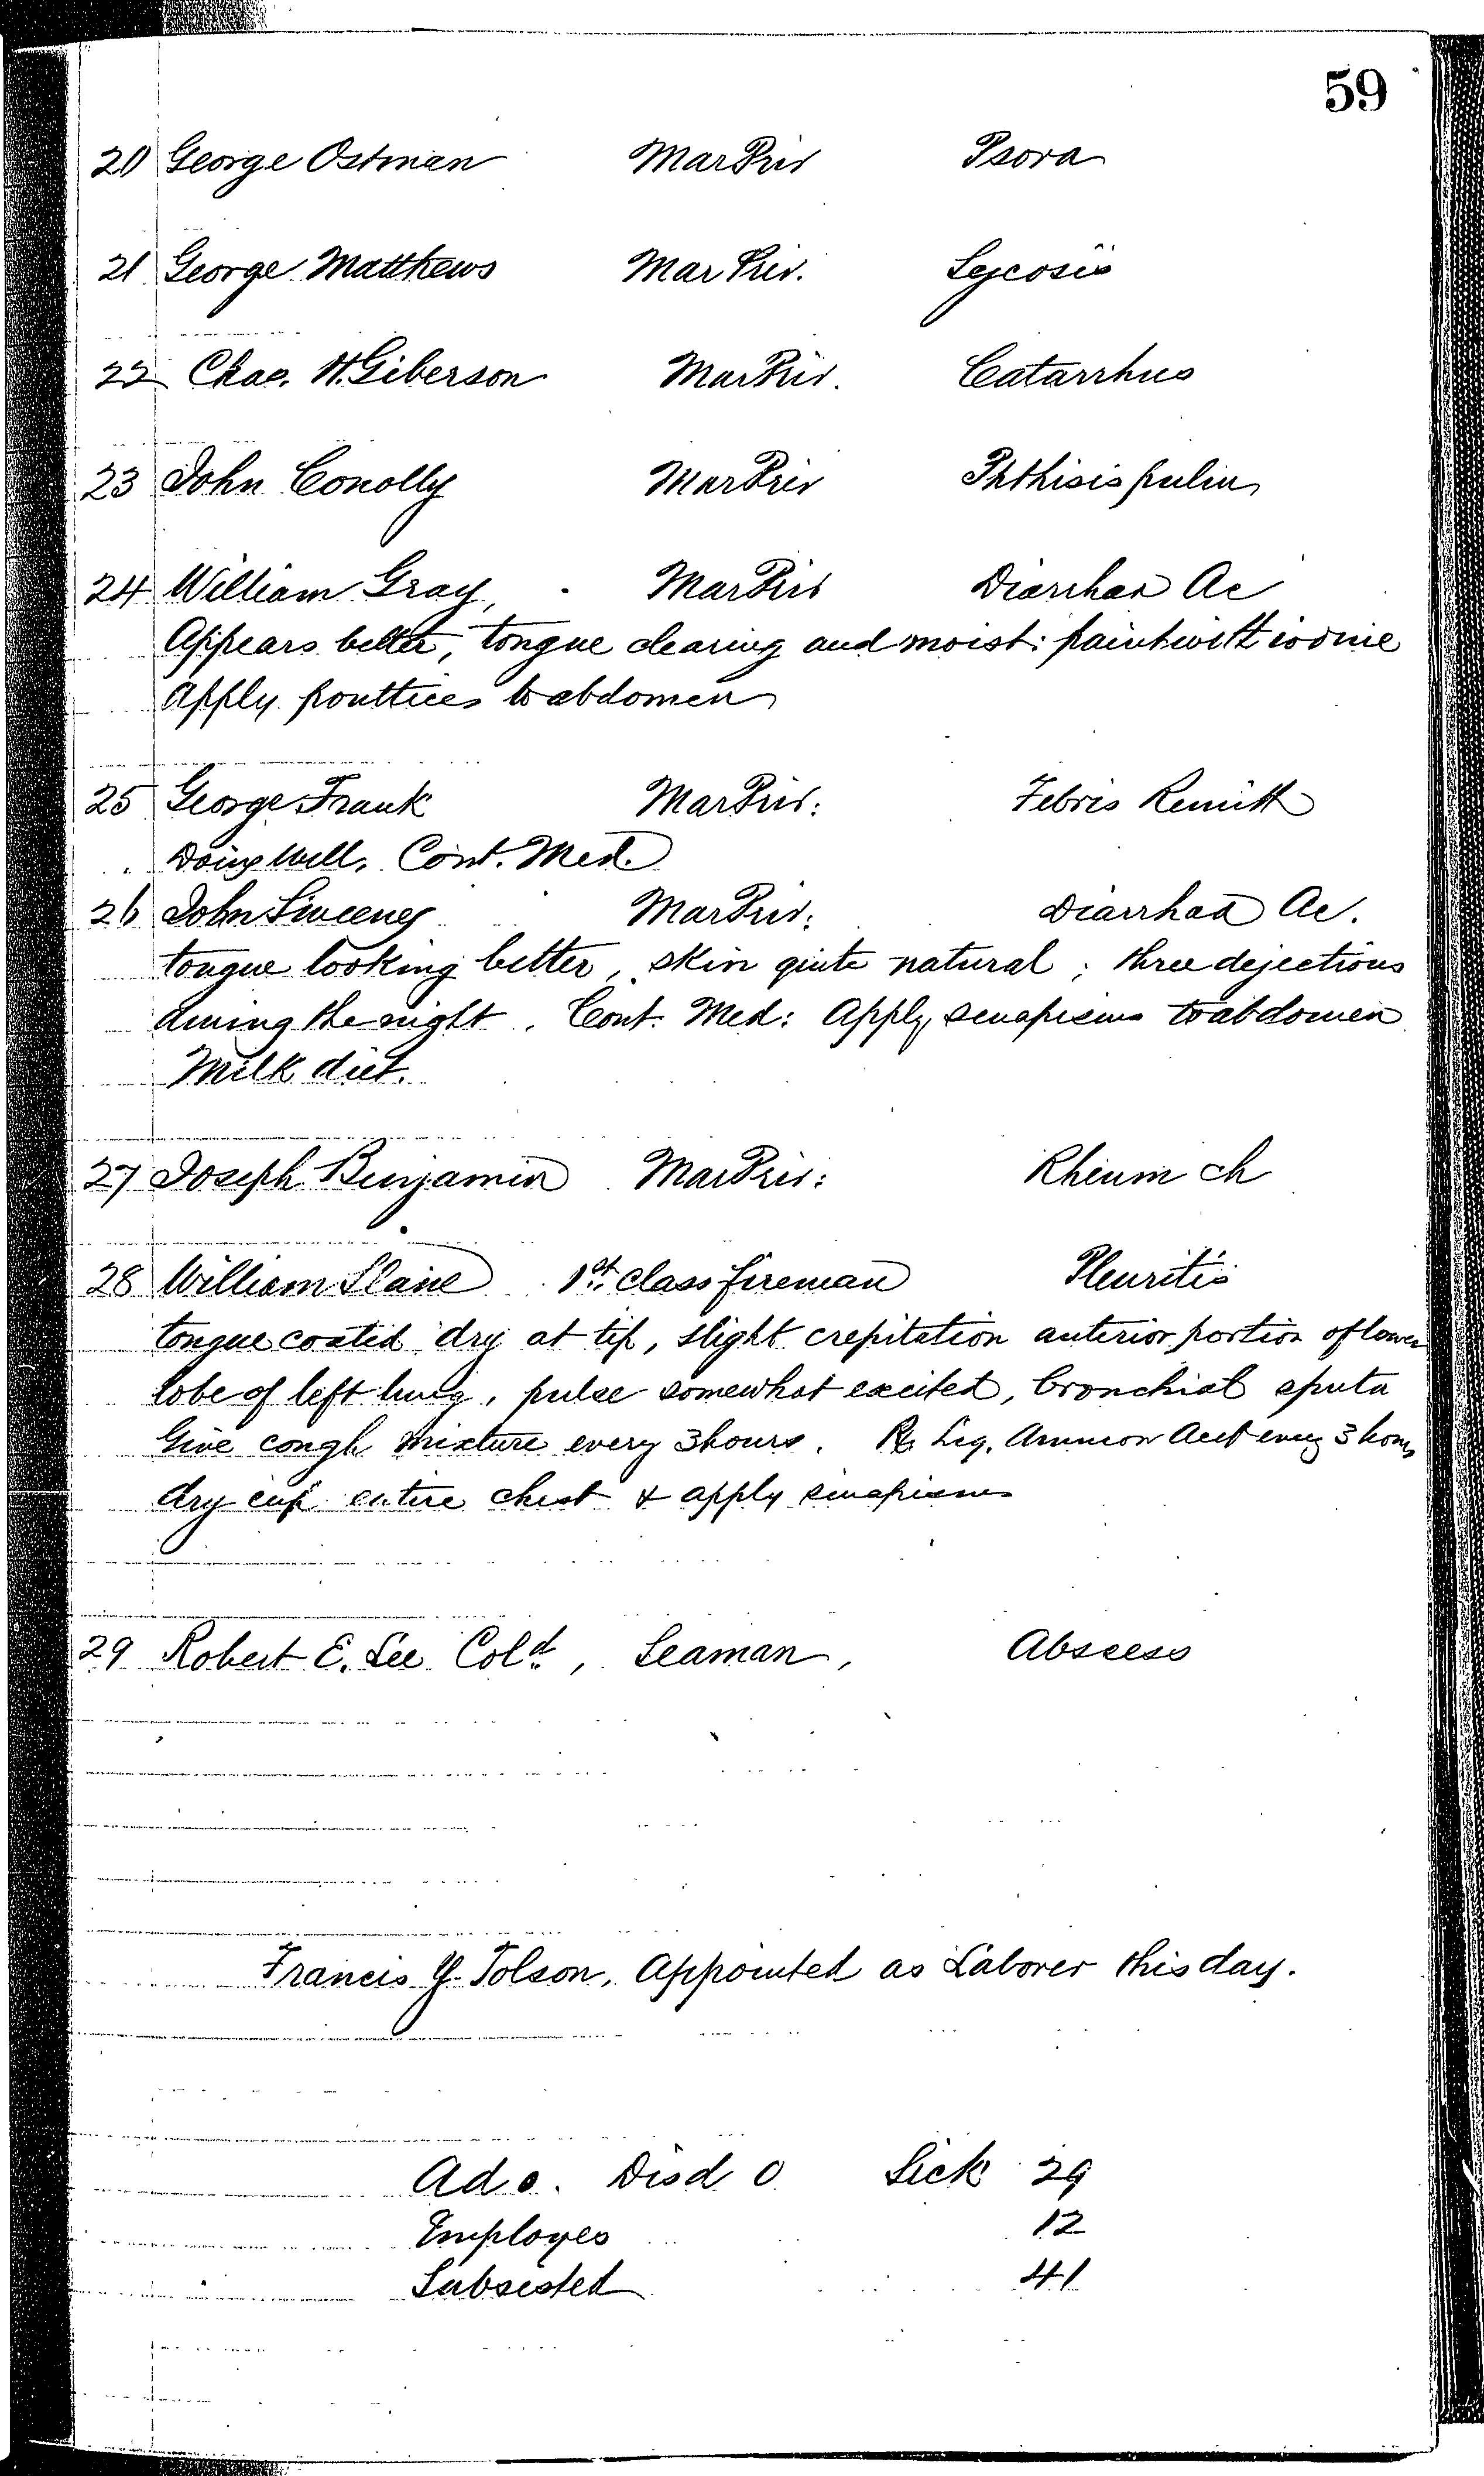 59
20 George Ostman Mar Priv Psora
21 George Matthews Mar Priv. Sycosis
22 Chas. H. Giberson Mar Priv. Catarrhus
23 John Conolly Mar Priv Phthisis pulm
24 William Gray, Mar Priv Diarrhœa Ac
Appears better, tongue clearing and moist: paint with iodine
Apply poultices to abdomen
25 George Frank Mar Priv: Febris Remitt
Doing Well, Cont. Med.
26 John Sweeney Mar Priv: Diarrhœa Ac.
tongue looking better, skin quite natural; three dejections
during the night. Cont. Med: Apply sinapisms to abdomen
Milk diet.
27 Joseph Benjamin Mar Priv: Rheum ch
28 William Slane 1st class fireman Pleuritis
tongue coated dry at tip, slight crepitation anterior portion of lower
lobe of left lung, pulse somewhat excited, bronchial sputa
Give cough mixture every 3 hours. ℞ Liq. Ammon Acet every 3 hours
dry cup entire chest & apply sinapisms
29 Robert E. Lee Cold, Seaman, Abscess
Francis Y. Tolson, Appointed as Laborer this day.
Ad 0. Disd 0 Sick 29
Employes 12
Subsisted 41